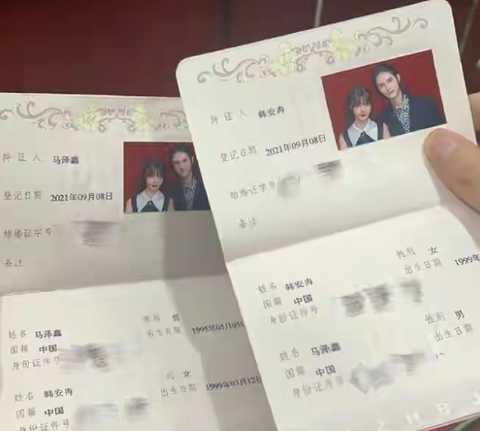 持证人 马泽鑫
登记日期 2021年09月08日
结婚证字号
备注
姓名 马泽鑫 性别 男
国籍 中国 出生日期
身份证件号
姓名 韩安冉 女
国籍 中国 出生日期 1999年03月12日
身份证件号
持证人 韩安冉
登记日期 2021年09月08日
结婚证字号
备注
姓名 韩安冉 性别 女
国籍 中国 出生日期 1999年
身份证件号
姓名 马泽鑫 性别 男
国籍 中国 出生日期
身份证件号